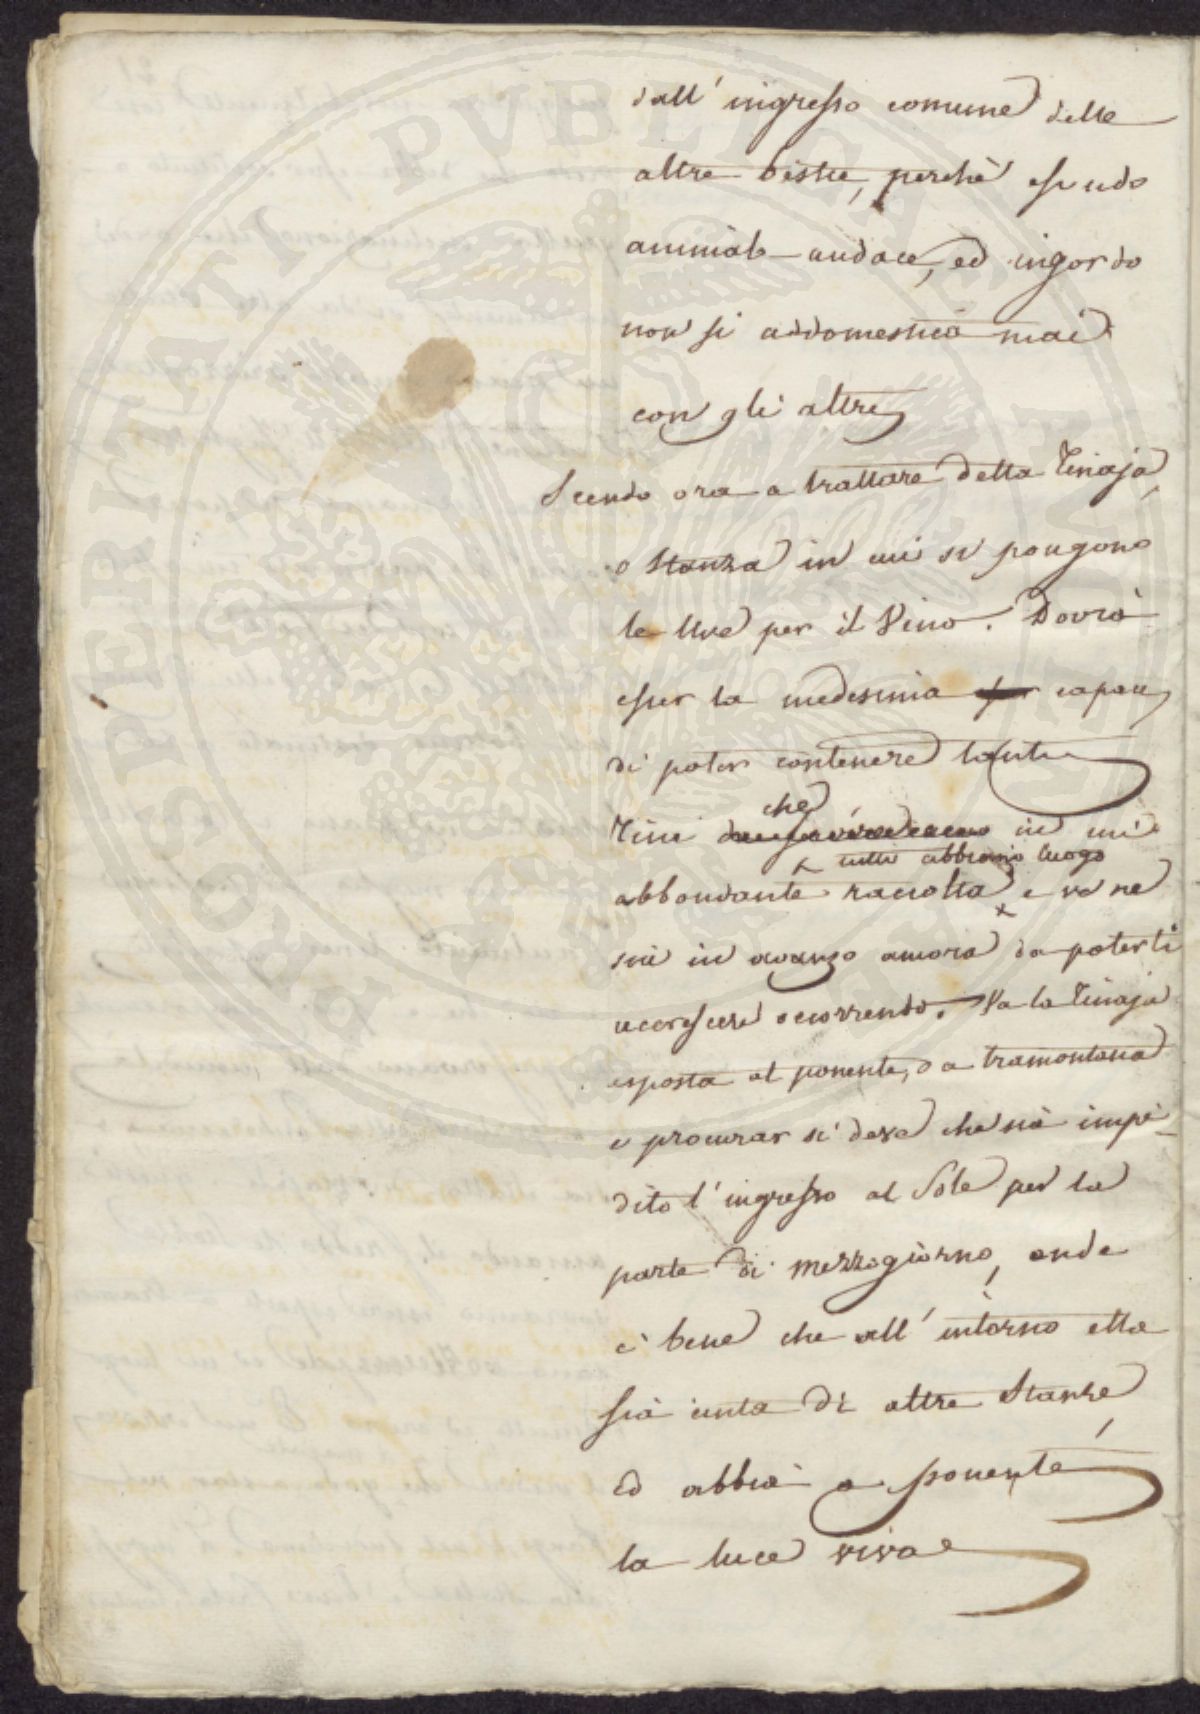 dall' ingresso comune delle
altre bestie, perchè essendo
animale audace, ed ingordo
non si addomestica mai
con gli altri
Scendo ora a trattare della Tinaja,
o Stanza in cui si pongono
le Uve per il Vino. Dovrà
esser la medesima capace
di poter contenere tante
che
Tine in un'
tutte abbiano luogo
abbondante raccolta e ve ne
sia in avanzo ancora da poterle
accrescere occorrendo. Va la Tinaja
esposta al ponente, o a tramontana
e procurar si deve che sia impe-
dito l' ingresso al Sole per la
parte di mezzogiorno, onde
è bene che all' intorno ella
sia cinta di altre Stanze
ed abbia a ponente
la luce viva
PROSPERITATI PVBLICAE AVGENDAE